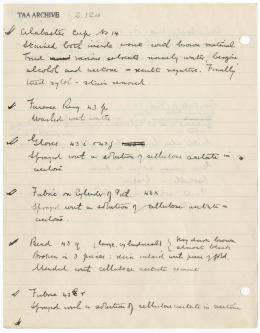 TAA ARCHIVE 2.32a
Alabaster Cup No 14
Stained both inside and with brown material
Tried various solvents namely water, benzine
alcohol and acetone - result negative. Finally
tried xylol - stain removed
Faience Ring 43 p
Washed with water
Gloves 43
Sprayed with a solution of cellulose acetate in
acetone
Fabric on Cylinder of Felt
Sprayed with a solution of cellulose acetate in
acetone.
Bead 43 q (large, cylindrical) (very dark brown
almost black)
Broken in 3 pieces: skin inlaid with piece of gold.
Mended with cellulose acetate cement
Fabric 43
Sprayed with a solution of cellulose acetate in acetone